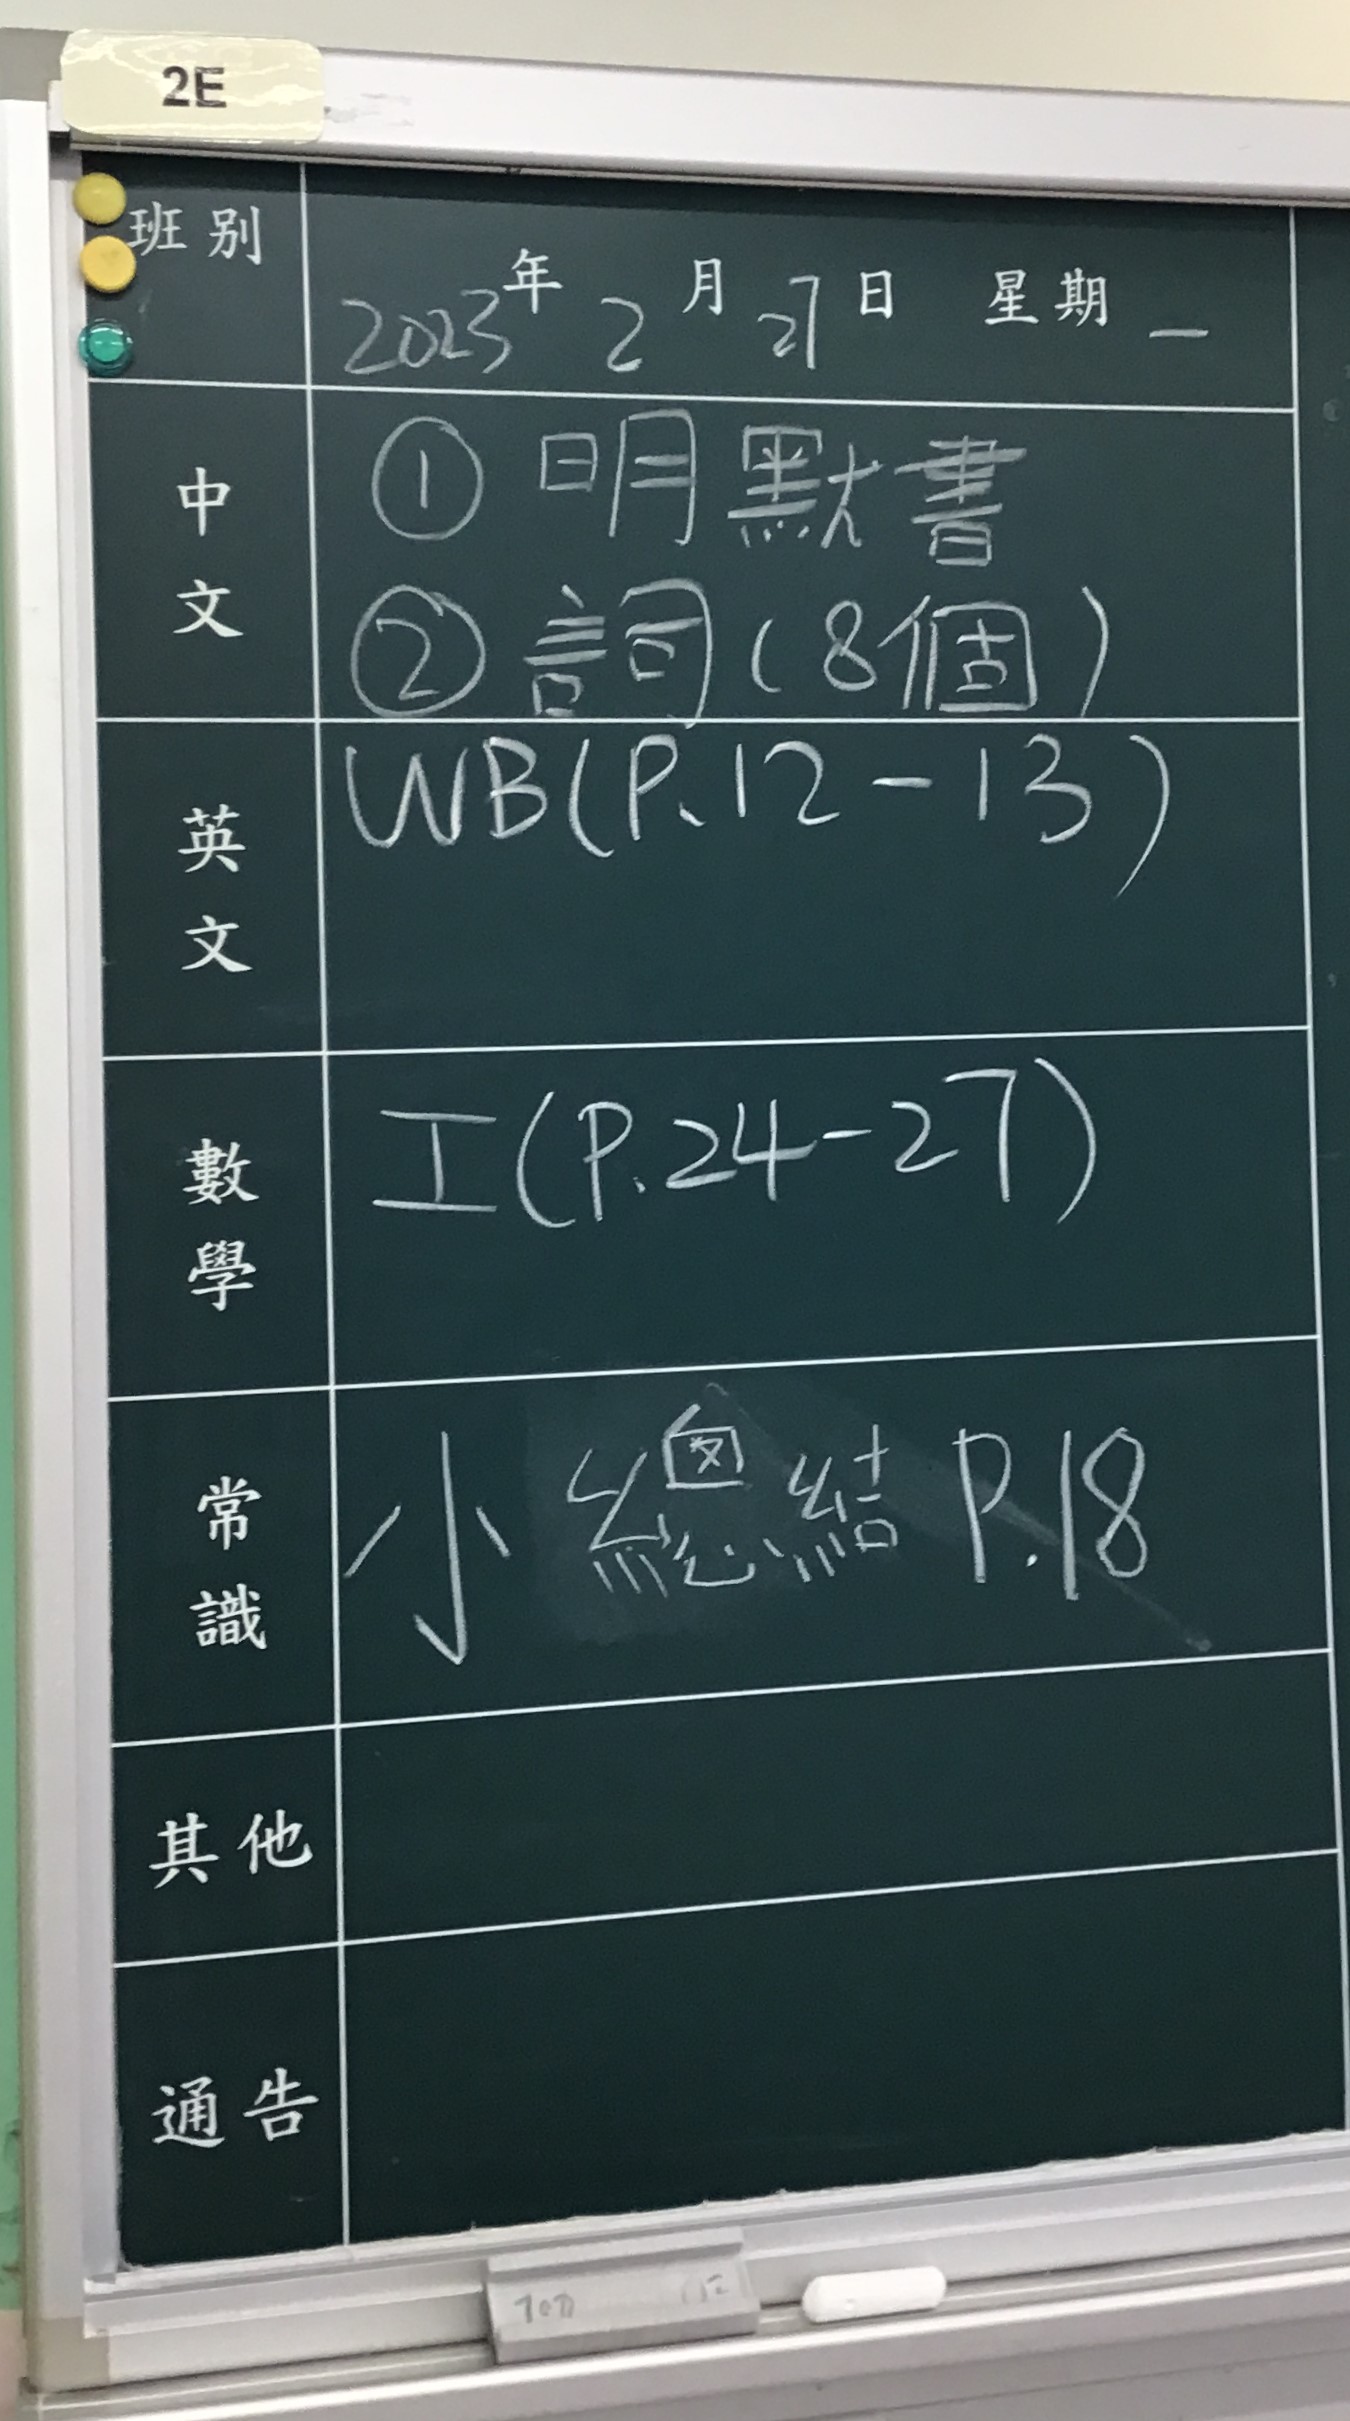 2E
班別
2023年 2月 27日 星期一
中文
① 明默書
② 詞(8個)
英文
WB(P.12-13)
數學
工(P.24-27)
常識
小總結 P.18
其他
通告